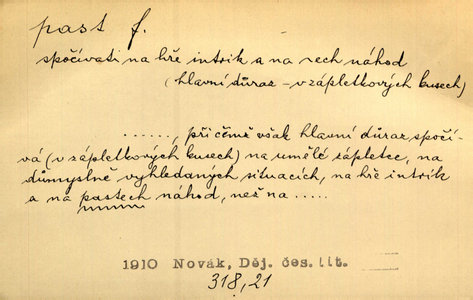 past f.
spočívati na hře intrik a na nech náhod
(hlavní důraz – v zápletkových kusech)
......, při čemž však hlavní důraz spočí-
vá (v zápletkových kusech) na umělé zápletce, na
důmyslně vyhledaných situacích, na hře intrik
a na pastech náhod, než na .....
1910 Novák, Děj. čes. lit.
318,21